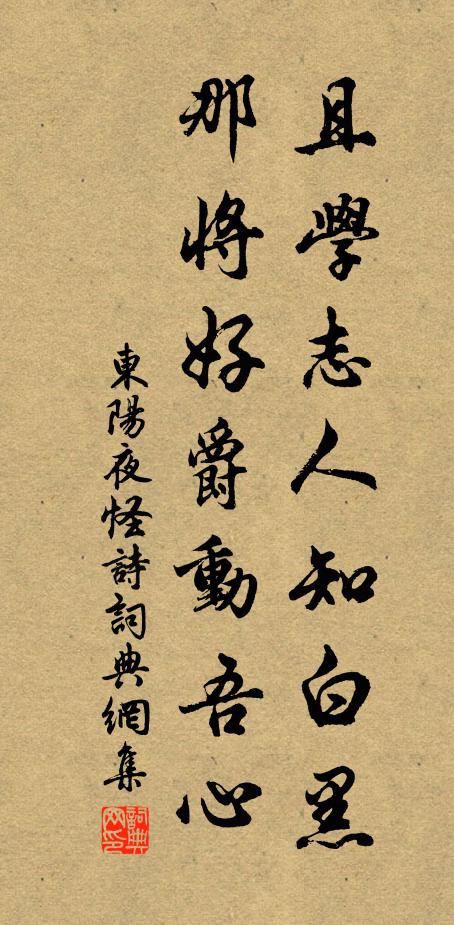 且學志人知白黑
那將好爵動吾心
東陽夜怪詩詞典網集
詞典網印